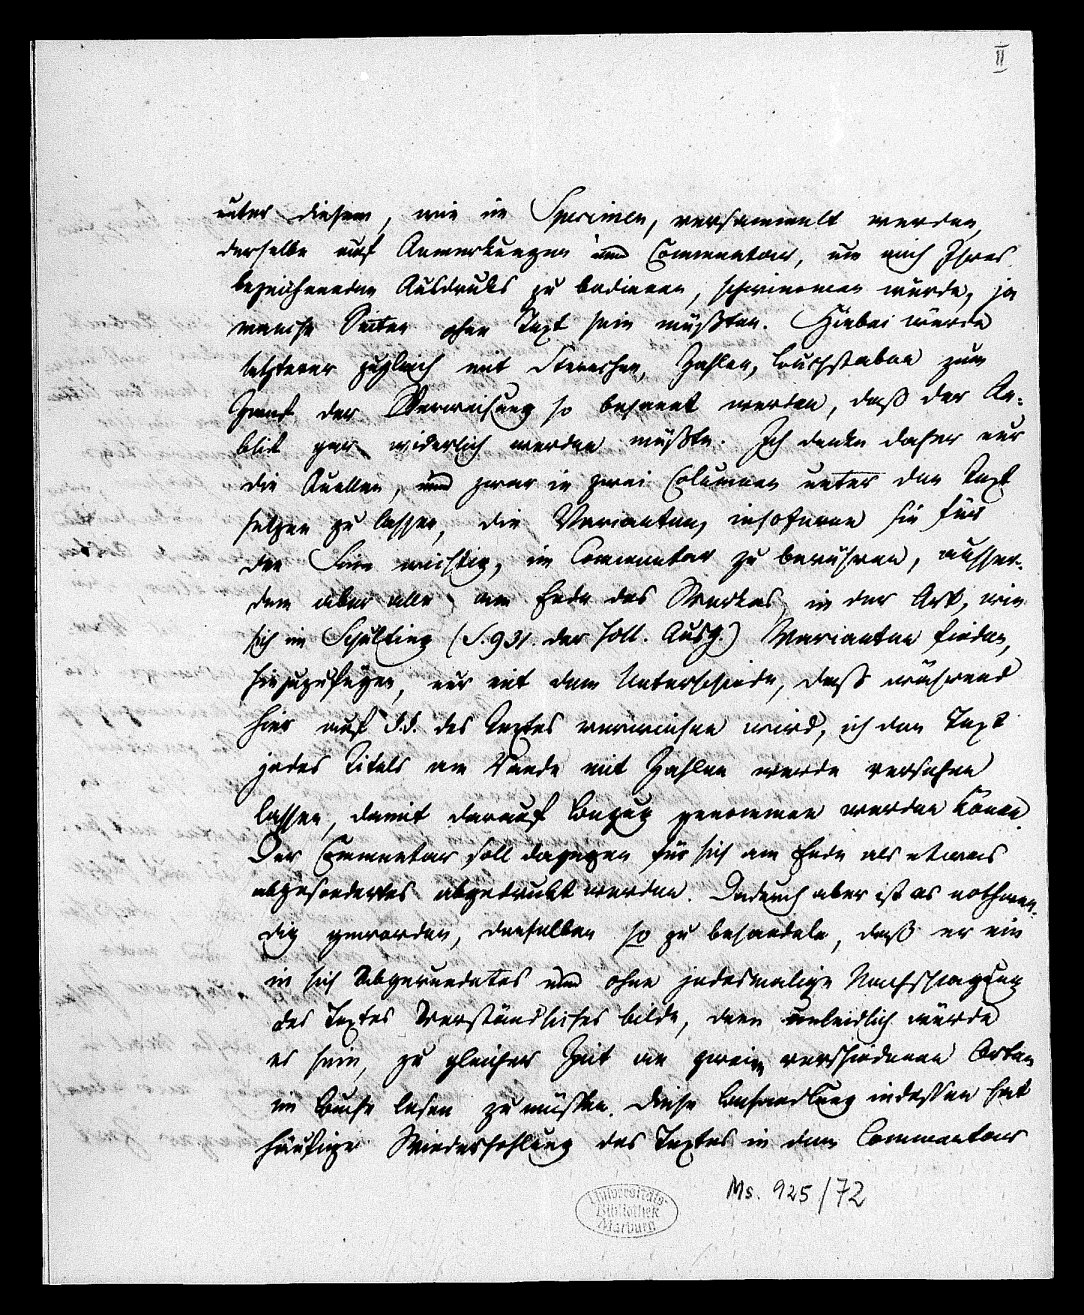 II
unter diesem, wie im Specimen, versammelt werden,
derselbe auf Anmerkungen und Commentar, um mich Ihres
bezeichnenden Ausdruks zu bedienen, schwimmen würde, ja
manche Seiten ohne Text sein müßten. Hiebei würde
letzterer zugleich mit Sternchen, Zahlen, Buchstaben zum
Zwek der Verweisung so besäet werden, daß der An-
blik gar widerlich werden müßte. Ich denke daher nur
die Quellen, und zwar in zwei Columnen unter den Text
setzen zu lassen, die Varianten, insoferne sie für
den Sinn wichtig, im Commentar zu berühren, ausser-
dem aber alle am Ende des Werkes in der Art, wie
sich im Schulting (S. 931. der holl. Ausg.) Varianten finden,
hinzuzufügen, nur mit dem Unterschiede, daß während
hier auf §§. des Textes verwiesen wird, ich den Text
jedes Titels am Rande mit Zahlen werde versehen
lassen, damit darauf Bezug genommen werden könne.
Der Commentar soll dagegen für sich am Ende als etwas
abgesondertes abgedrukt werden. Dadurch aber ist es nothwen-
dig geworden, denselben so zu behandeln, daß er ein
in sich Abgerundetes und ohne jedesmalige Nachschlagung
des Textes Verständliches bilde, denn unleidlich würde
es sein, zu gleicher Zeit an zweien verschiedenen Orten
im Buche lesen zu müssen. Diese Behandlung indessen hat
häufige Wiederholung des Textes in dem Commentar
Ms. 925/72
Universitäts-
Bibliothek
Marburg